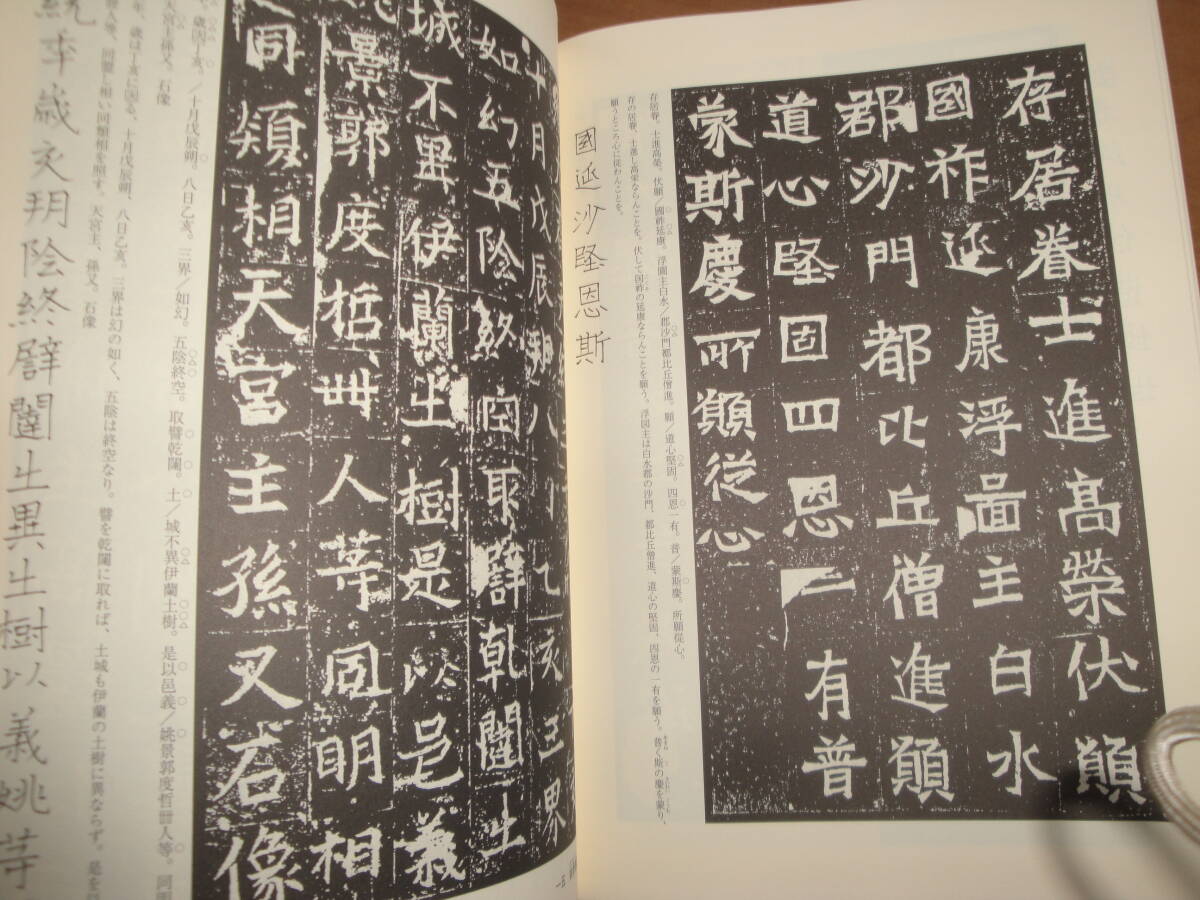 存居眷士進高榮伏願
國祚延康浮啚主白水
郡沙門都比丘僧進願
道心堅固四恩一有普
蒙斯慶所願從心
存居眷、士進高榮。伏願/國祚延康。浮圖主白水/郡沙門都比丘僧進。願/道心堅固。四恩一有。普/蒙斯慶。所願從心。
存の居眷、士進し高栄ならんことを。伏して国祚の延康ならんことを願う。浮図主は白水郡の沙門、都比丘僧進、道心の堅固、四恩の一有を願う。普く斯の慶を蒙り、
願うところ心に従わんことを。
國延沙堅恩斯
十月戊辰朔八日乙亥三界
如幻五陰終空取譬乾闥土
城不異伊蘭土樹是以邑義
景郭度哲卌人等同明相
頍相天宮主孫又石像
歳因丁亥。/十月戊辰朔、八日乙亥。三界/如幻。五陰終空。取譬乾闥。土/城不異伊蘭土樹。是以邑義/姚景郭度哲卌人等。同
天宮主孫又。石像
年、歳は丁亥に因る、十月戊辰朔、八日乙亥。三界は幻の如く、五陰は終空なり。譬を乾闥に取れば、土城も伊蘭の土樹に異ならず。是を
人等、同明し相い回頍相を照す。天宮主、孫又。石像
統年歳亥朔陰終譬闥土異土樹以義姚等
一五